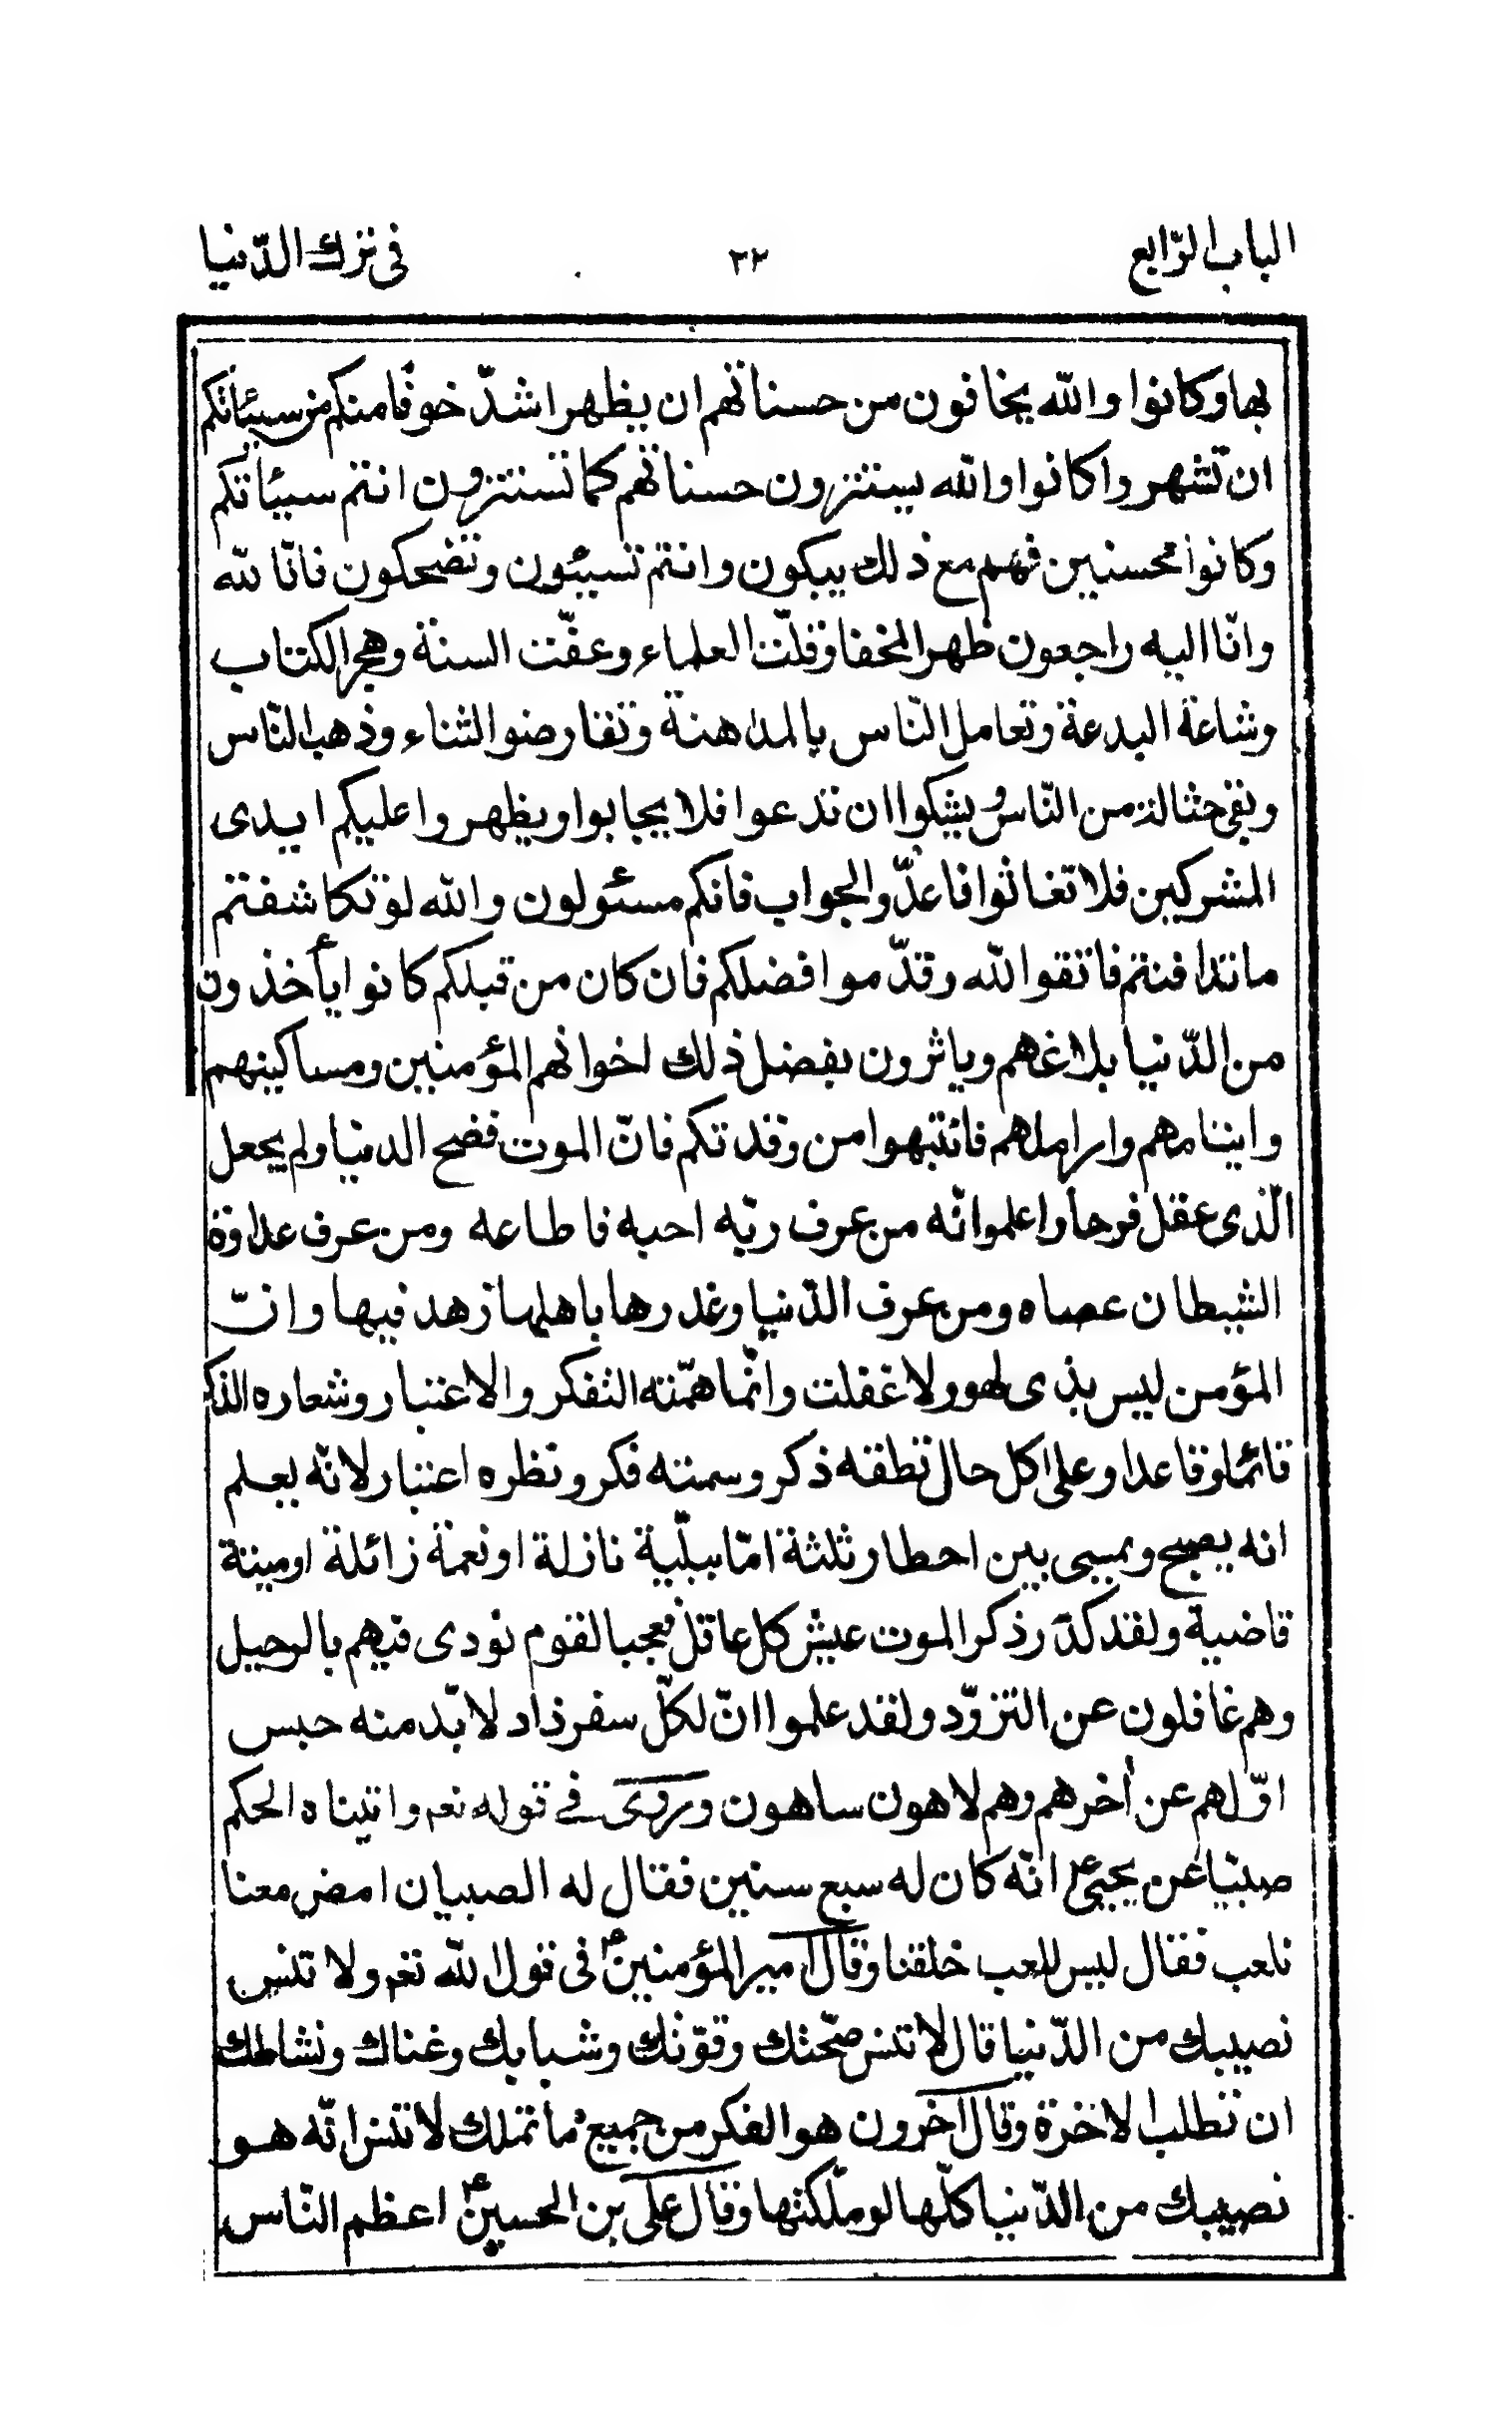 الباب الرّابع
٢٢
فى ترك الدّنيا
بها وكانوا والله يخافون من حسناتهم ان يظهر اشدّ خوفا منكم من سيئاتكم
ان تشهروا كانوا والله يستترون حسناتهم كما تستترون انتم سيئاتكم
وكانوا محسنين فهم مع ذلك يبكون وانتم تسيئون وتضحكون فانّا لله
وانّا اليه راجعون ظهر الخفا وقلّت العلماء وعفّت السنة وهجر الكتاب
وشاعة البدعة وتعامل النّاس بالمداهنة وتقارضوا الثناء وذهب النّاس
وبقى حثالة من النّاس و يشكوا ان تدعوا فلا يجابوا ويظهروا عليكم ايدى
المشركين فلا تغاثوا فاعدّوا الجواب فانكم مسئولون والله لو تكاشفتم
ما تدافنتم فاتقوا الله وقدّموا فضلكم فان كان من قبلكم كانوا يأخذون
من الدّنيا بلاغهم وياثرون بفضل ذلك لخوانهم المؤمنين ومساكينهم
وايتامهم واراملهم فانتبهوا من وقدتكم فانّ الموت فضح الدنيا ولم يجعل
الّذى عقل فرحا واعلموا انّه من عرف ربّه احبه فاطاعه ومن عرف عداوة
الشيطان عصاه ومن عرف الدّنيا وغدرها باهلها زهد فيها وانّ
المؤمن ليس بذى لهو ولا غفلت وانّما همّته التفكر والاعتبار وشعاره الذكر
قائما وقاعدا وعلى اكل حال نطقه ذكر وسمته فكر ونظره اعتبار لانّه يعلم
انه يصبح ويمسى بين احطار ثلثة امّا ببلّية نازلة او نعمة زائلة او ميتة
قاضية ولقد كدّر ذكر الموت عيش كل عاقل فعجبا لقوم نودى فيهم بالرحيل
وهم غافلون عن التزوّد ولقد علموا انّ لكلّ سفر زاد لا بّد منه حبس
اوّلهم عن أخرهم وهم لاهون ساهون وروى فى قوله تعم واتيناه الحكم
صبيّا عن يحيى ع انّه كان له سبع سنين فقال له الصبيان امض معنا
نلعب فقال ليس للعب خلقنا وقال امير المؤمنين ع فى قول الله تعم ولا تنس
نصيبك من الدّنيا قال لا تنس صحّتك وقوّتك وشبابك وغناك ونشاطك
ان تطلب الاخرة وقال اخرون هو الفكر من جميع ما تملك لا تنس انّه هو
نصيبك من الدّنيا كلّها لو ملّكتها وقال على بن الحسين ع اعظم النّاس